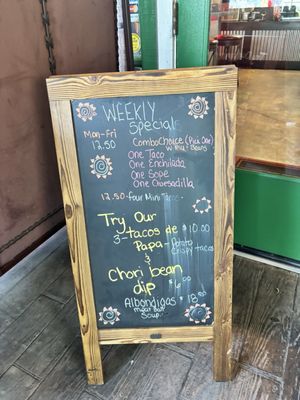 WEEKLY
Special
Mon-Fri
12.50
Combo Choice (Pick One)
w Rice + Beans
One Taco
One Enchilada
One Sope
One Quesadilla
12.50 - four Mini Tacos
Try Our
3- tacos de $10.00
Papa - Potato
crispy tacos
&
Chori bean $6.00
dip
Albondigas $18.50
meat Ball
Soup